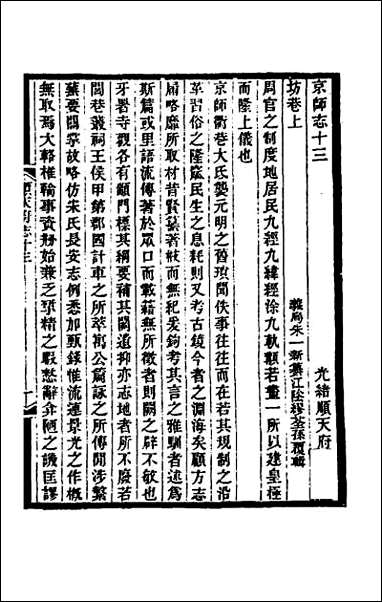 京師志十三
光緒順天府
坊巷上
義烏朱一新纂江陰繆荃孫覆輯
周官之制度地居民九經九緯經涂九軌顯若畫一所以建皇極
而隆上儀也
京師衢巷大氐襲元明之舊琐聞佚事往往而在若其規制之沿
革習俗之隆窳民生之息耗則又考古鏡今者之淵海矣顧方志
闕略靡所取材昔賢纂著岐而無紀爰鉤考其言之雅馴者述爲
斯篇或里語流傳著於眾口而載籍無所徵者則闕之辟不敏也
牙署寺觀各有顓門標其綱要補其闕遺抑亦志地者所不廢若
閭巷叢祠王侯甲第郡國計車之所萃寓公篇詠之所傳閒涉繁
蕪要關掌故略仿朱氏長安志例悉加甄錄惟流連景光之作概
無取焉大輅椎輪事資剙始兼乏研精之暇慙辭弇陋之譏匡謬